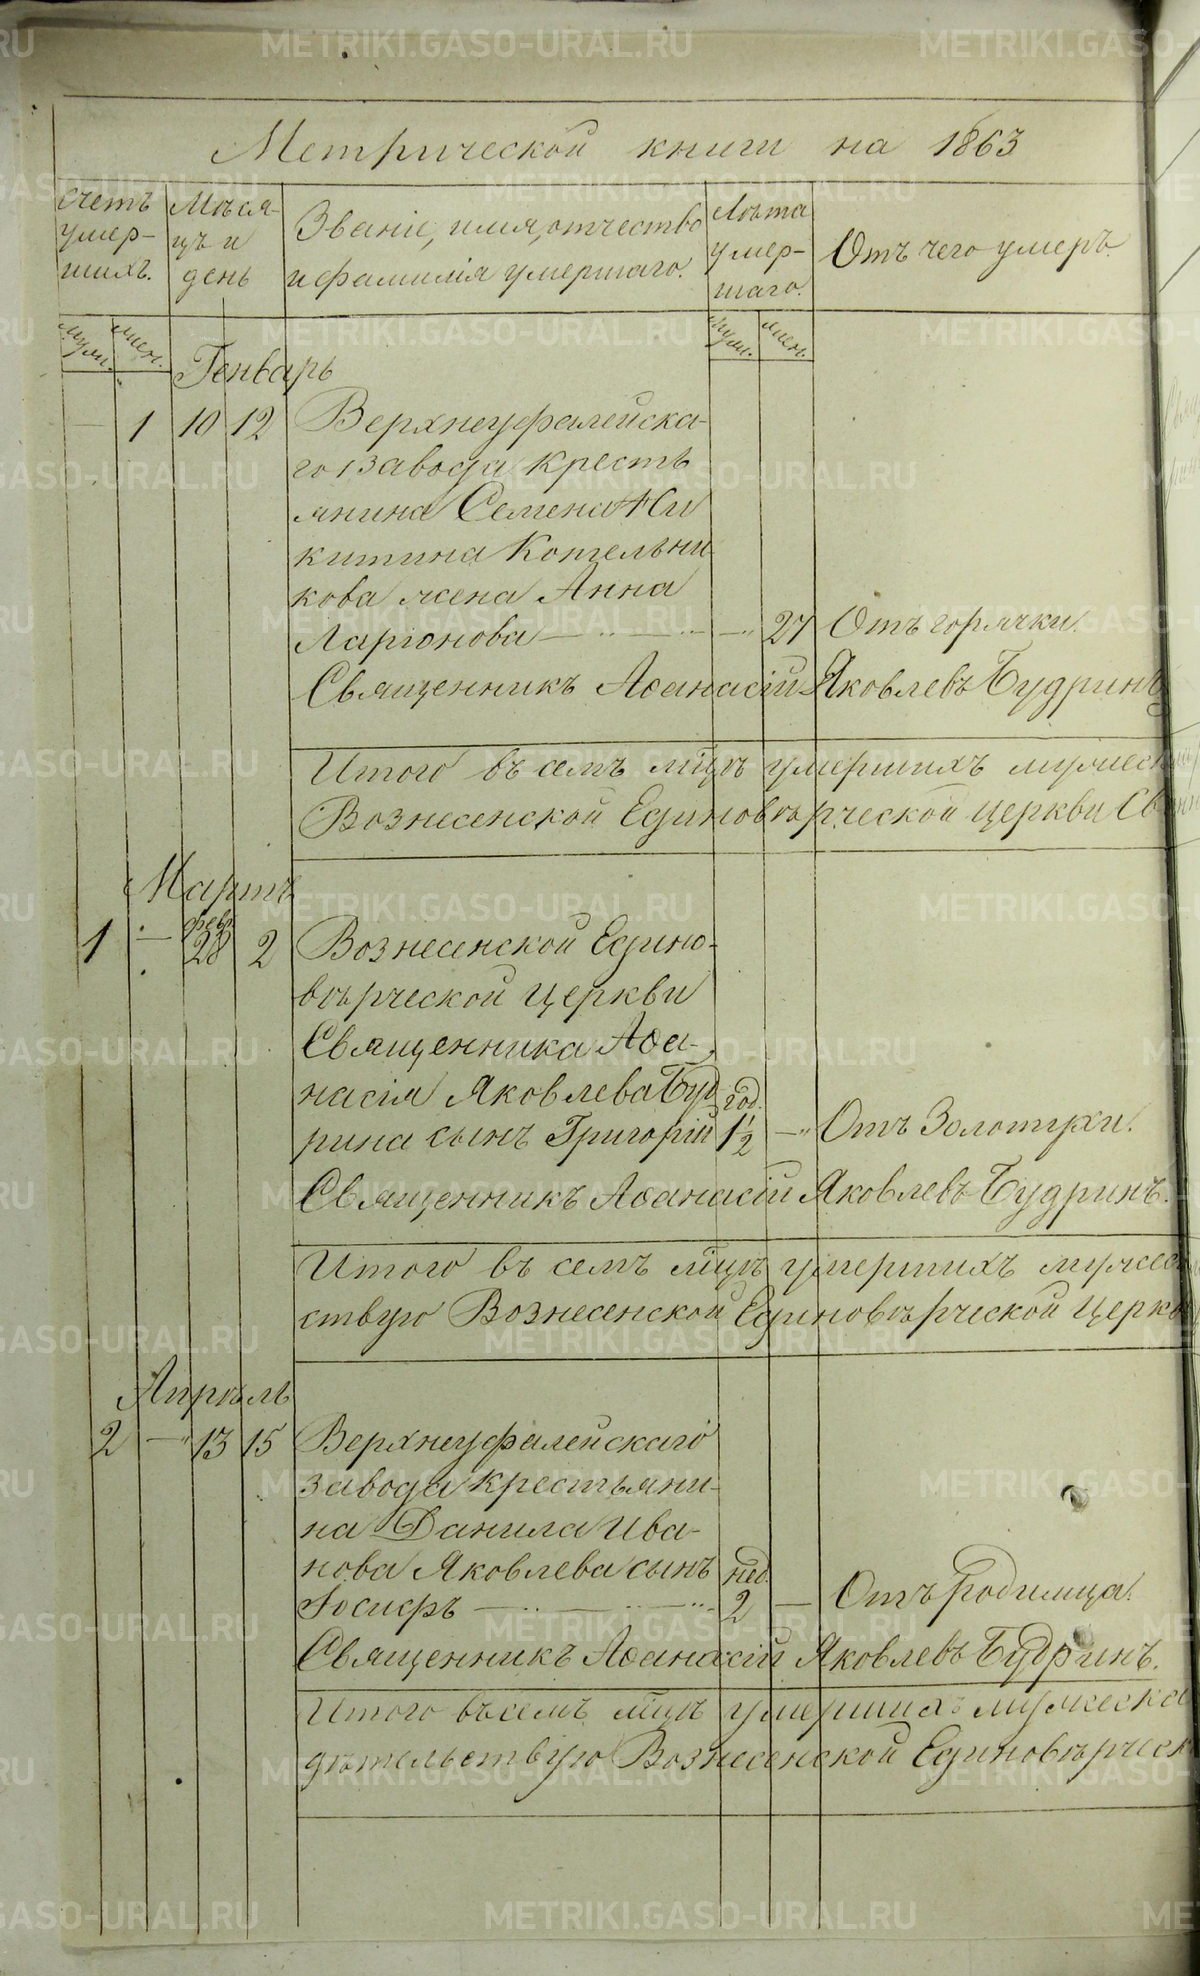 Метрической книги на 1863
Счетъ умер-шихъ.
Мѣся-цъ и день
Званіе, имя, отчество и фамилія умершаго.
Лѣта умер-шаго.
Отъ чего умеръ.
муж. жен.
муж. жен.
Генварь
— 1 10 12 Верхнеуфалейска-
го завода крестъ
янина Семена Ни
китина Котельни
кова жена Анна
Ларіонова — 27 Отъ горячки.
Священникъ Аѳанасій Яковлевъ Будринъ
Итого въ семъ мцѣ умершихъ мужес
Вознесенской Единовѣрческой церкви Св
Мартъ
1 — Фев. 28 2 Вознесенской Едино-
вѣрческой церкви
Священника Аѳа-
насія Яковлева Буд
рина сынъ Григорій год. 1½ — Отъ Золотухи.
Священникъ Аѳанасій Яковлевъ Будринъ.
Итого въ семъ мцѣ умершихъ мужес
ствую Вознесенской Единовѣрческой церкв
Апрѣль
2 — 13 15 Верхнеуфалейскаго
завода крестьяни-
на Данила Ива-
нова Яковлева сынъ нед.
Іосифъ — 2 — Отъ родимца.
Священникъ Аѳанасій Яковлевъ Будринъ.
Итого въ семъ мцѣ умершихъ мужеска
дѣтельствую Вознесенской Единовѣрческ
METRIKI.GASO-URAL.RU